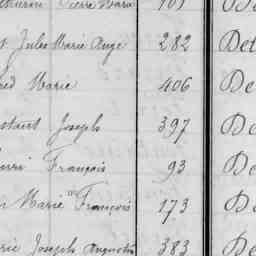 Pierre Marie 101 D
Jules Marie Ange 282 Det
Marie 406 De
Joseph 397 De
François 93 De
Marie François 173 De
Joseph Augustin 383 De